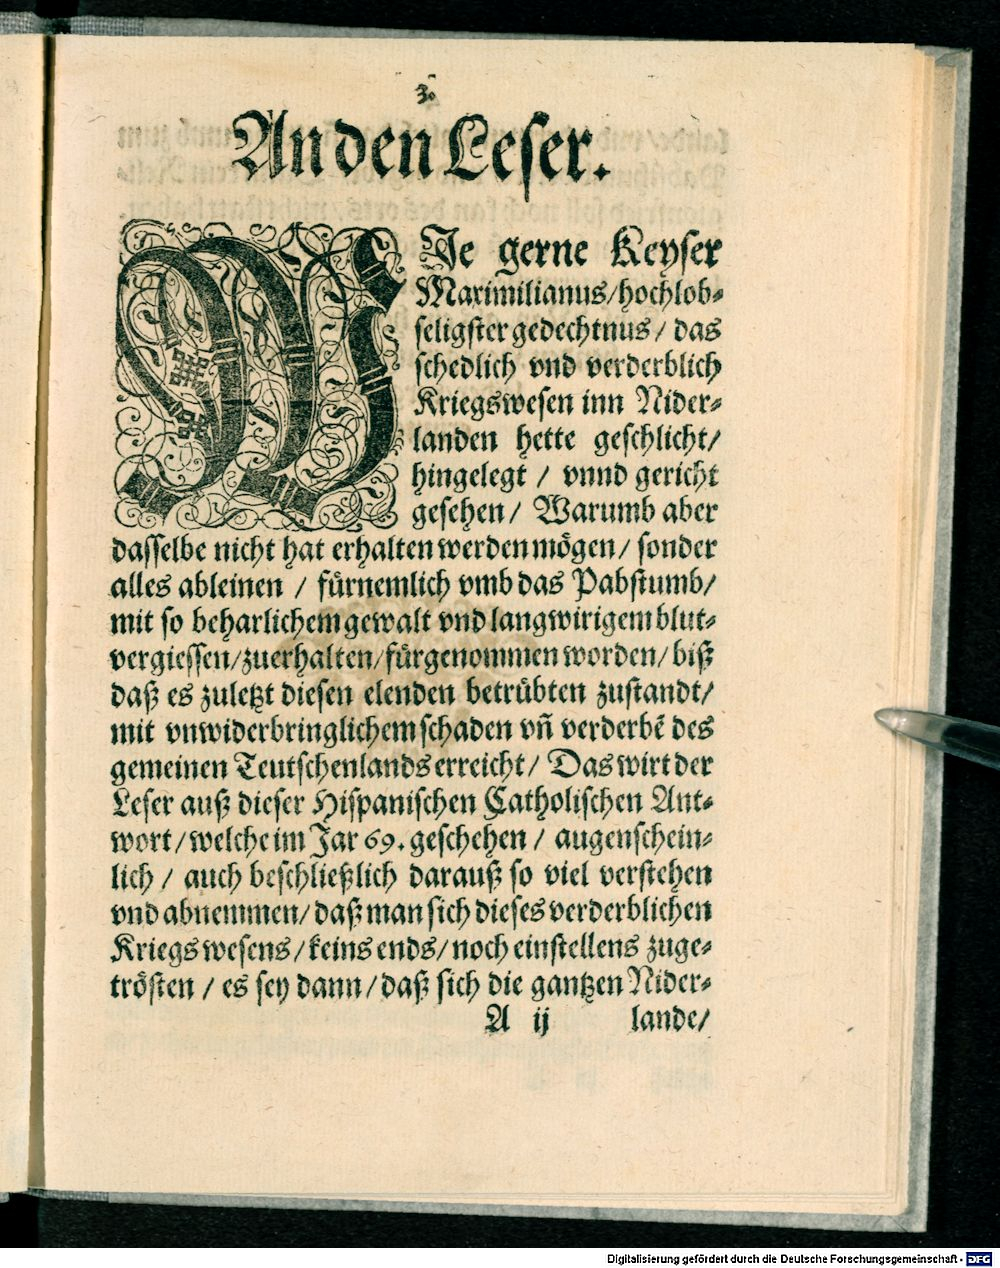 3.
An den Leser.
WJe gerne Keyser
Maximilianus/hochlob-
seligster gedechtnus / das
schedlich vnd verderblich
Kriegswesen inn Nider-
landen hette geschlicht/
hingelegt / vnnd gericht
gesehen / Warumb aber
dasselbe nicht hat erhalten werden mögen / sonder
alles ableinen / fürnemlich vmb das Pabstumb/
mit so beharlichem gewalt vnd langwirigem blut-
vergiessen/zuerhalten/fürgenommen worden/ biß
daß es zuletzt diesen elenden betrübten zustandt/
mit vnwiderbringlichem schaden vn̄ verderbē des
gemeinen Teutschenlands erreicht/ Das wirt der
Leser auß dieser Hispanischen Catholischen Ant-
wort/welche im Jar 69. geschehen / augenschein-
lich / auch beschließlich darauß so viel verstehen
vnd abnemmen/daß man sich dieses verderblichen
Kriegswesens/keins ends/noch einstellens zuge-
trösten / es sey dann/daß sich die gantzen Nider-
A ij lande/
Digitalisierung gefördert durch die Deutsche Forschungsgemeinschaft - DFG